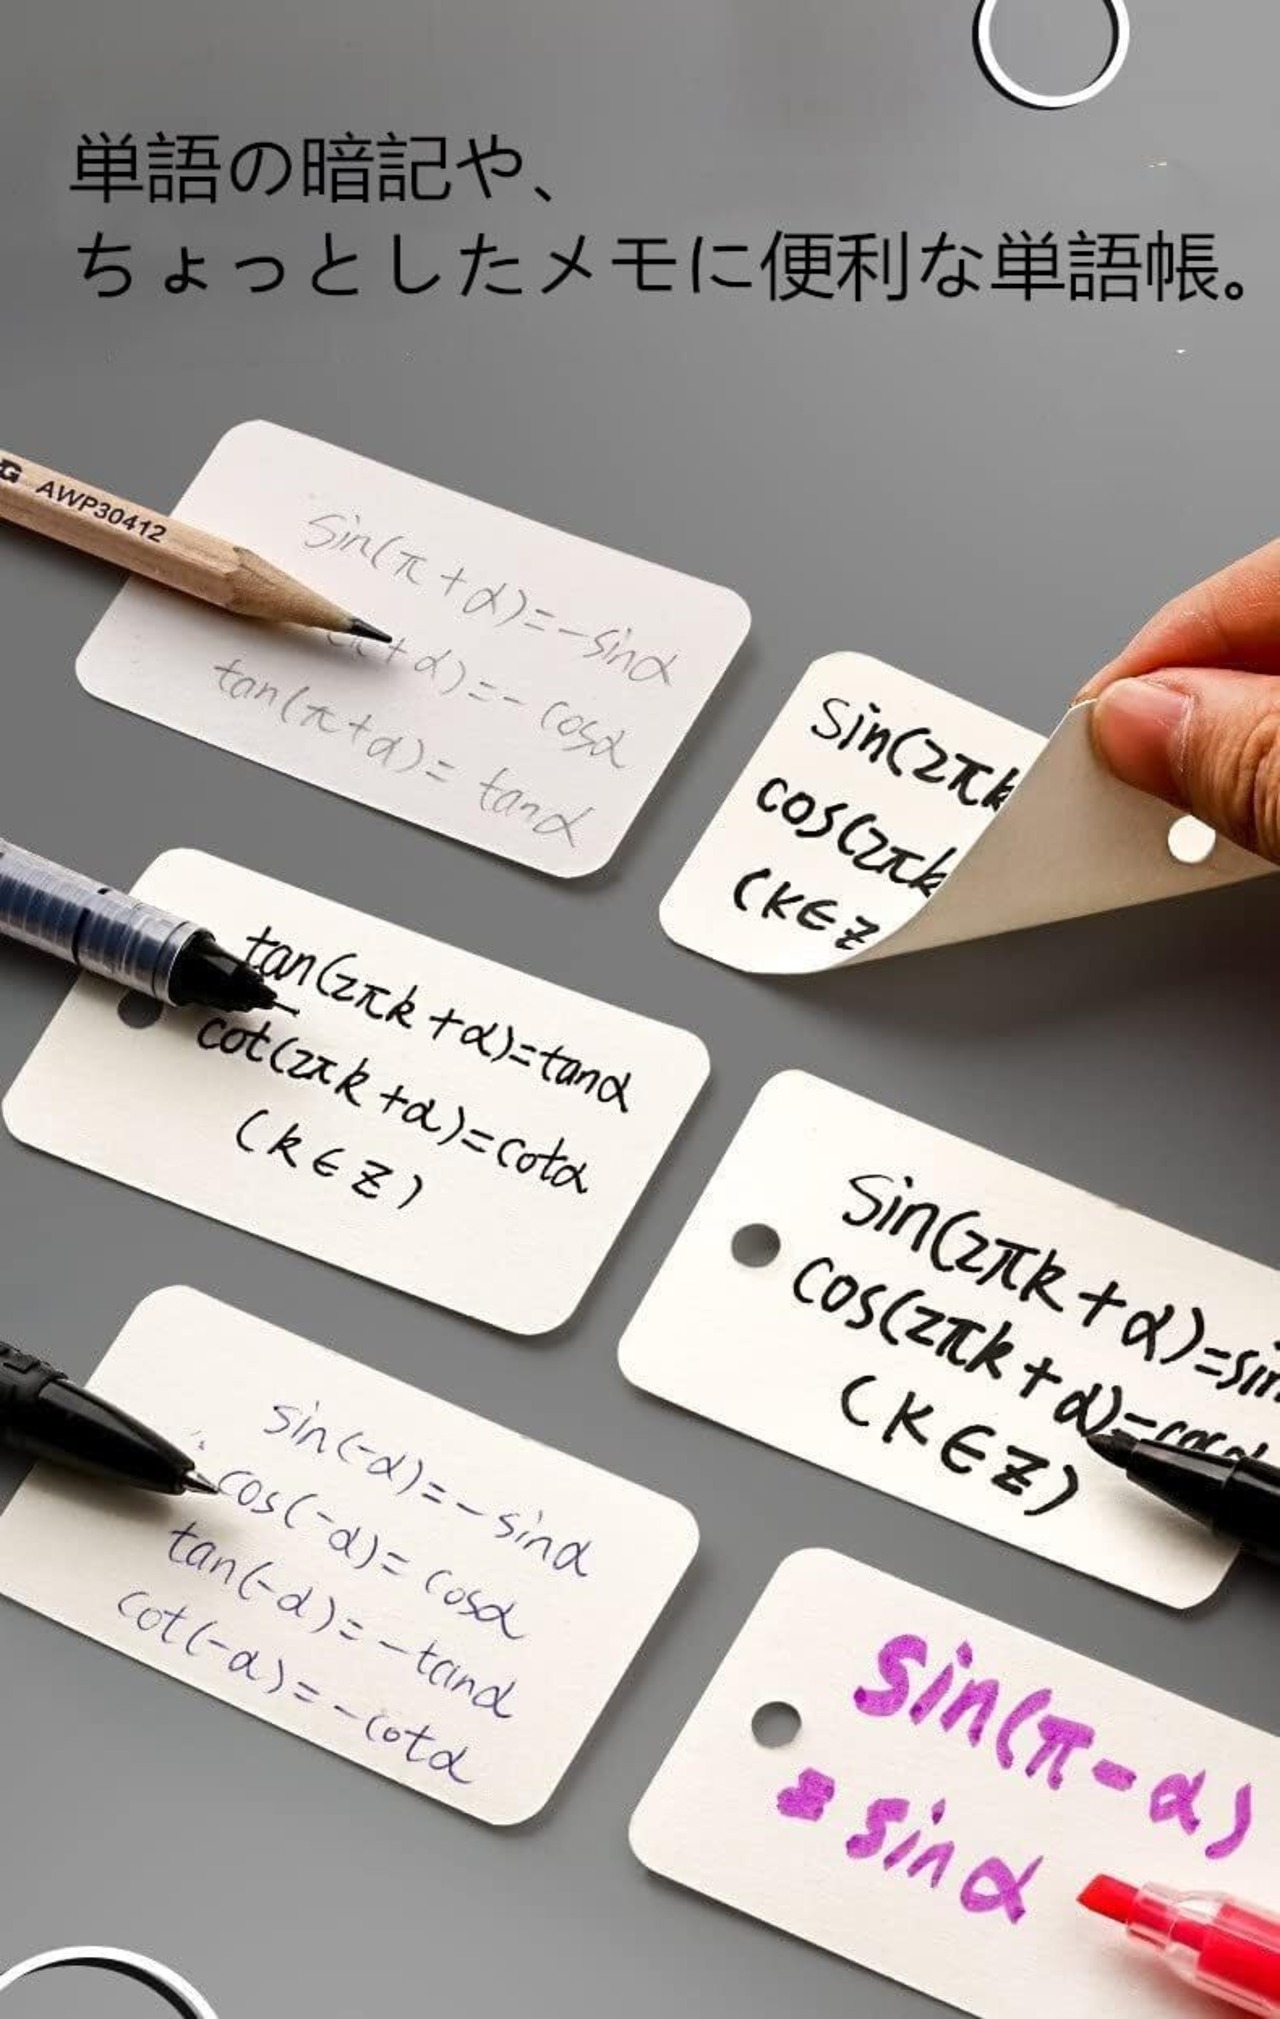 単語の暗記や、
ちょっとしたメモに便利な単語帳。
G AWP30412
sin(π+α)=-sinα
(π+α)=-cosα
tan(π+α)=tanα
sin(2πk
cos(2πk
(k∈Z
tan(2πk+α)=tanα
cot(2πk+α)=cotα
(k∈Z)
sin(2πk+α)=sin
cos(2πk+α)=cosα
(k∈Z)
sin(-α)=-sinα
cos(-α)=cosα
tan(-α)=-tanα
cot(-α)=-cotα
sin(π-α)
=sinα